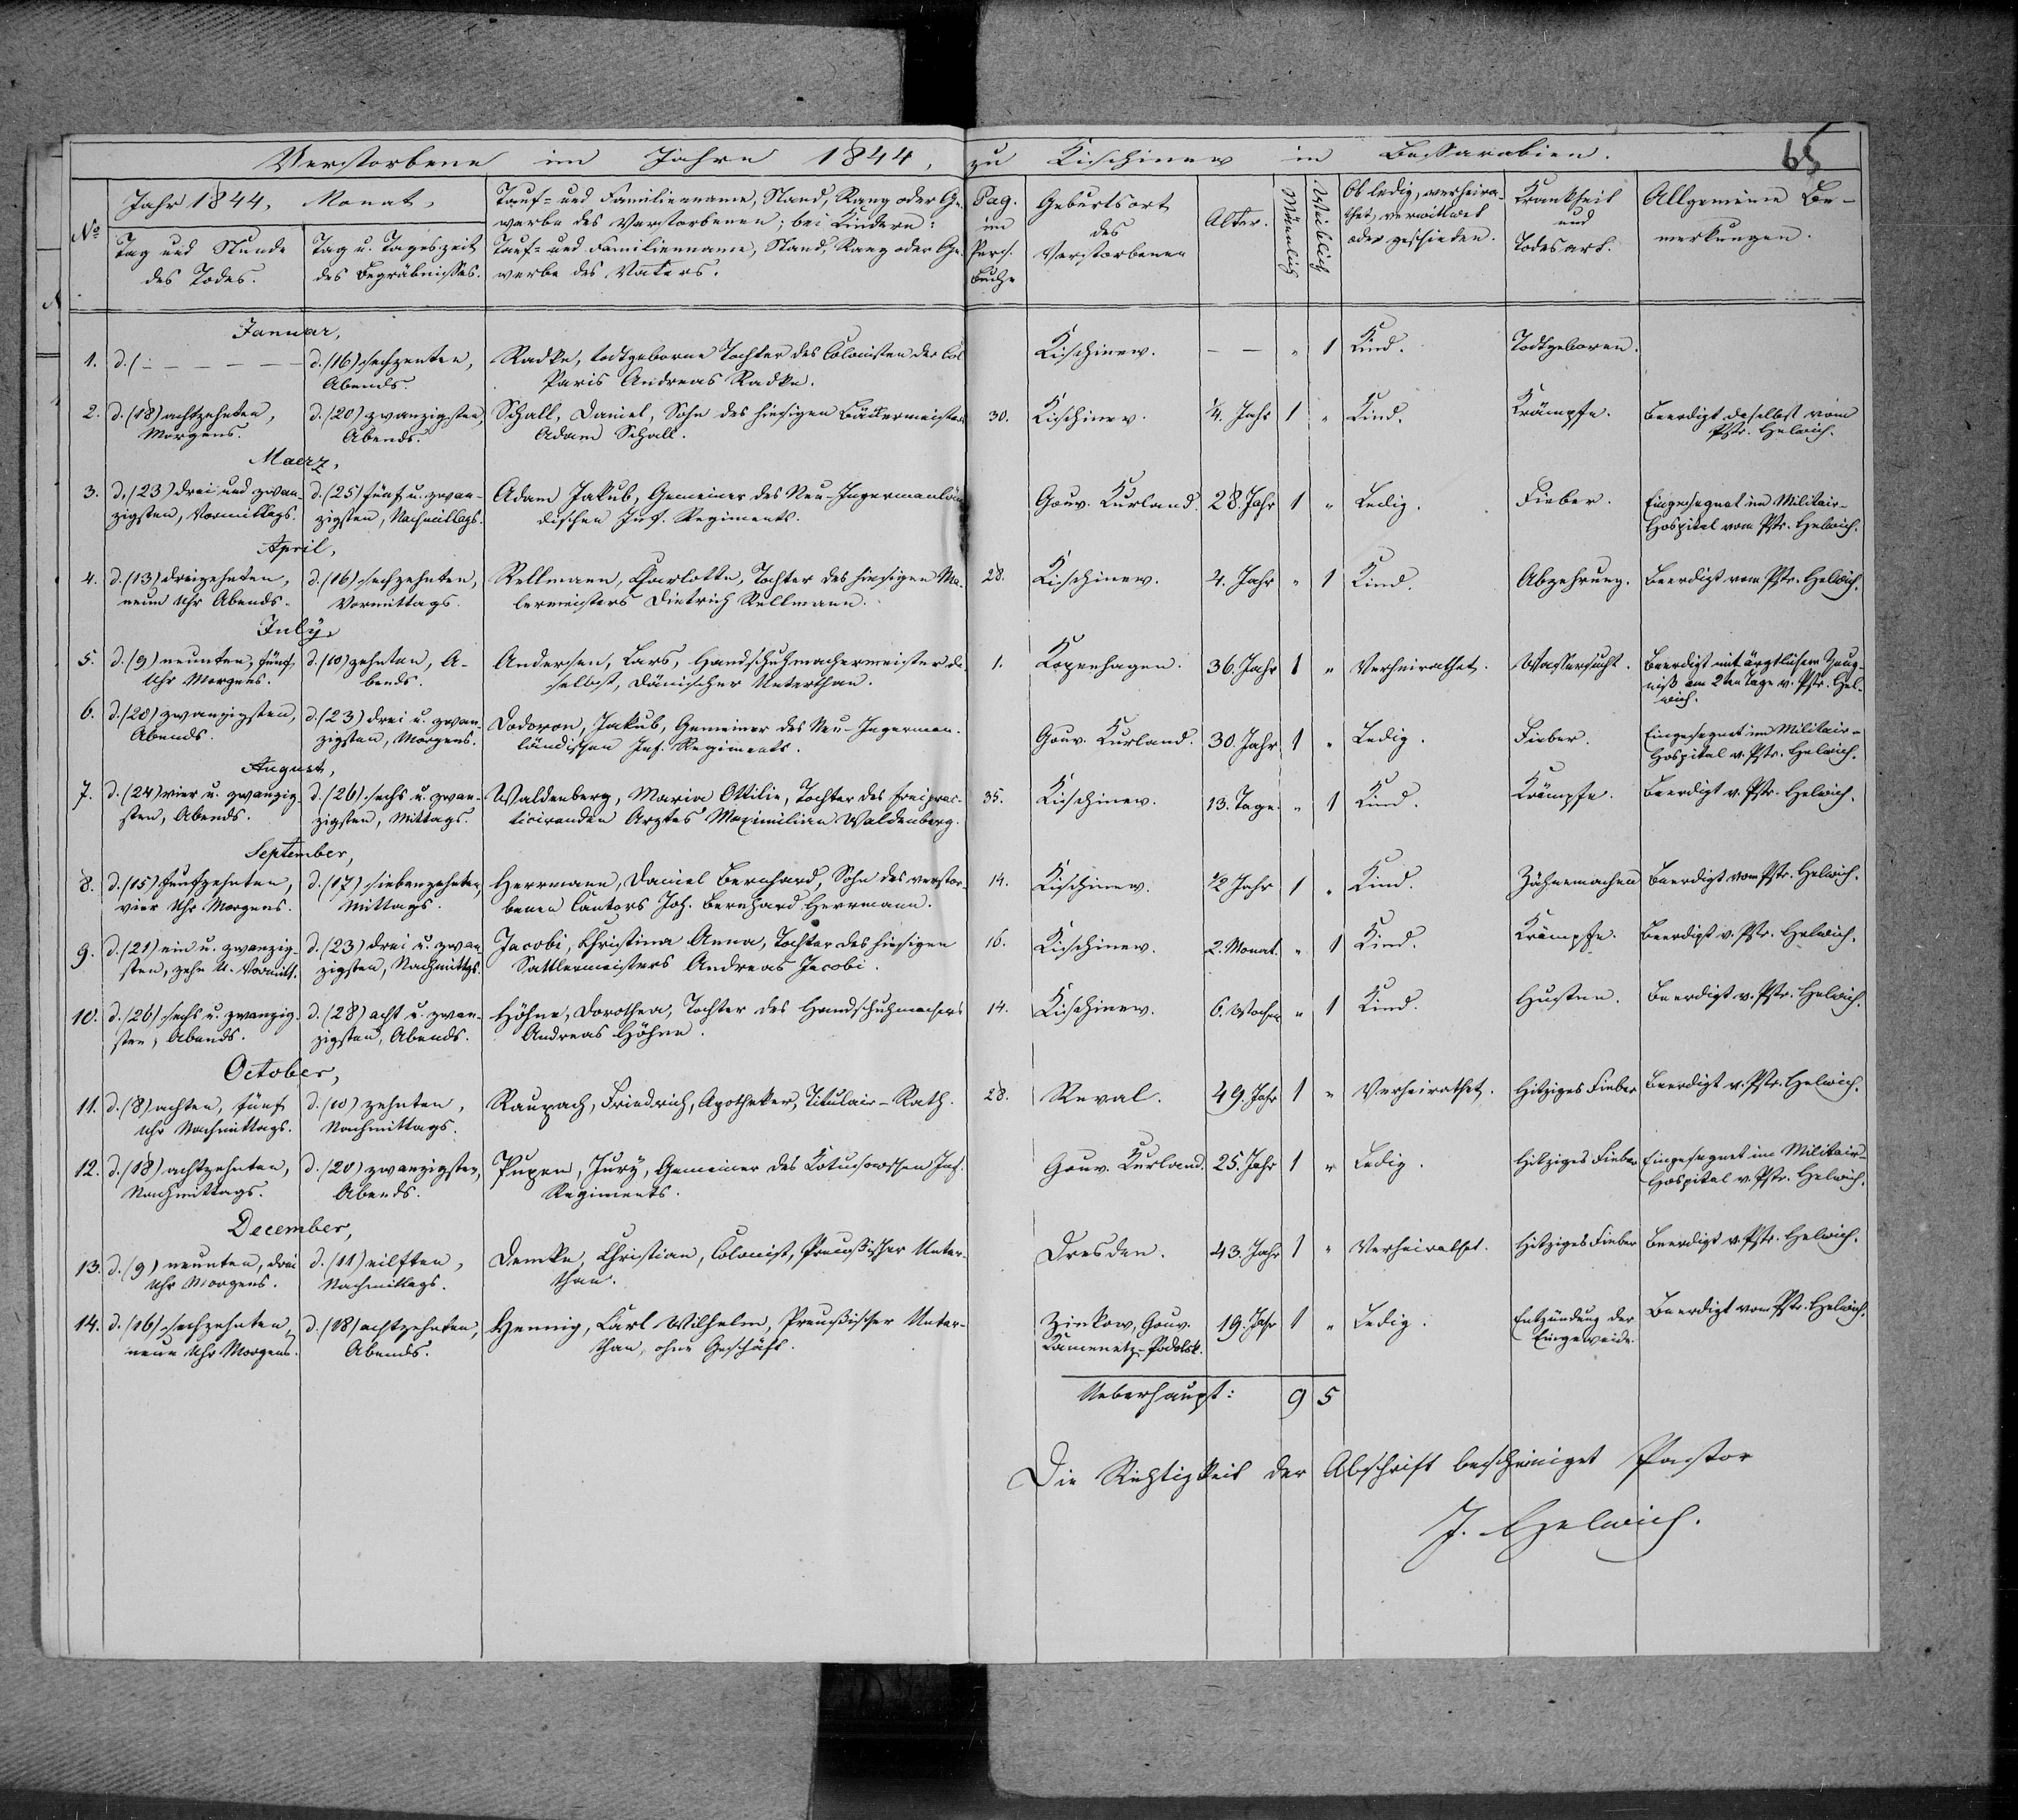 Verstorbene im Jahre 1844, zu Kischinew in Bessarabien.
65
No
Jahr 1844. Monat,
Tag und Stunde
des Todes.
Tag u. Tageszeit
des Begräbnisses.
Tauf- und Familienname, Stand, Rang oder Ge-
werbe des Verstorbenen; bei Kindern:
Tauf- und Familienname, Stand, Rang oder Ge-
werbe des Vaters.
Pag.
im
Pers.
Buche
Geburtsort
des
Verstorbenen
Alter.
Männlich
Weiblich
Ob ledig, verheira-
thet, verwittwet
oder geschieden.
Krankheit
und
Todesart.
Allgemeine Be-
merkungen.
Januar,
1. d. (– – – – – – d. (16) sechzenten, Radke, todtgeborne Tochter des Colonisten der Col Kischinew. – – " 1 Kind. Todtgeboren.
Abends. Paris Andreas Radke.
2. d. (18) achtzehnten, d. (20) zwanzigsten, Schall, Daniel, Sohn des hiesigen Bäckermeisters 30. Kischinew. 1/4. Jahr 1 " Kind. Krämpfe. Beerdigt daselbst vom
Morgens. Abends. Adam Schall. Pstr. Helwich.
Maerz,
3. d. (23) drei und zwan- d. (25) fünf u. zwan- Adam Jakub, Gemeiner des Neu-Ingermanlän- Gouv. Kurland. 28. Jahr 1 " Ledig. Fieber. Eingesegnet im Militair-
zigsten, Vormittags. zigsten, Nachmittags. dischen Inf. Regiments. Hospital vom Pstr. Helwich.
April,
4. d. (13) dreizehnten, d. (16) sechzehnten, Rellmann, Charlotte, Tochter des hiesigen Ma- 28. Kischinew. 4. Jahr " 1 Kind. Abzehrung. Beerdigt vom Pstr. Helwich.
neun Uhr Abends. Vormittags. lermeisters Dietrich Rellmann.
July,
5. d. (9) neunten, fünf d. (10) zehnten, A- Andersen, Lars, Handschuhmachermeister da- 1. Kopenhagen. 36. Jahr 1 " Verheirathet. Wassersucht. Beerdigt mit ärztlichem Zeug-
Uhr Morgens. bends. selbst, Dänischer Unterthan. niß am 2ten Tage v. Pstr. Hel-
wich.
6. d. (20) zwanzigsten, d. (23) drei u. zwan- Dodoron, Jakub, Gemeiner des Neu-Ingerman- Gouv. Kurland. 30. Jahr 1 " Ledig. Fieber. Eingesegnet im Militair-
Abends. zigsten, Morgens. ländischen Inf. Regiments. Hospital v. Pstr. Helwich.
August,
7. d. (24) vier u. zwanzig- d. (26) sechs u. zwan- Waldenberg, Maria Ottilie, Tochter des freiprac- 35. Kischinew. 13. Tage. " 1 Kind. Krämpfe. Beerdigt v. Pstr. Helwich.
sten, Abends. zigsten, Mittags. ticirenden Arztes Maximilian Waldenberg.
September,
8. d. (15) funfzehnten, d. (17) siebenzehnten, Herrmann, Daniel Bernhard, Sohn des verstor- 14. Kischinew. 1/2 Jahr 1 " Kind. Zähnemachen Beerdigt vom Pstr. Helwich.
vier Uhr Morgens. Mittags. benen Cantors Joh. Bernhard Herrmann.
9. d. (21) ein u. zwanzig- d. (23) drei u. zwan- Jacobi, Christina Anna, Tochter des hiesigen 16. Kischinew. 2. Monat. " 1 Kind. Krämpfe. Beerdigt v. Pstr. Helwich.
sten, zehn U. Vormitt. zigsten, Nachmittgs. Sattlermeisters Andreas Jacobi.
10. d. (26) sechs u. zwanzig- d. (28) acht u. zwan- Höhne, Dorothea, Tochter des Handschuhmachers 14. Kischinew. 6. Wochen " 1 Kind. Husten. Beerdigt v. Pstr. Helwich.
sten, Abends. zigsten, Abends. Andreas Höhne.
October,
11. d. (8) achten, fünf d. (10) zehnten, Raupach, Friedrich, Apotheker, Titulair-Rath. 28. Reval. 49. Jahr 1 " Verheirathet. Hitziges Fieber Beerdigt v. Pstr. Helwich.
Uhr Nachmittags. Nachmittags.
12. d. (18) achtzehnten, d. (20) zwanzigsten, Pupen, Jury, Gemeiner des Kotusowschen Inf. Gouv. Kurland. 25. Jahr 1 " Ledig. Hitziges Fieber Eingesegnet im Militair-
Nachmittags. Abends. Regiments. Hospital v. Pstr. Helwich.
December,
13. d. (9) neunten, drei d. (11) eilften, Demke, Christian, Colonist, Preussischer Unter- Dresden. 43. Jahr 1 " Verheirathet. Hitziges Fieber Beerdigt v. Pstr. Helwich.
Uhr Morgens. Nachmittags. than.
14. d. (16) sechzehnten, d. (18) achtzehnten, Hennig, Carl Wilhelm, Preussischer Unter- Zinkow, Gouv. 19. Jahr 1 " Ledig. Entzündung der Beerdigt vom Pstr. Helwich.
neun Uhr Morgens. Abends. than, ohne Geschäft. Kamenetz-Podolsk. Eingeweide.
Ueberhaupt: 9 5
Die Richtigkeit der Abschrift bescheiniget Pastor
J. Helwich.